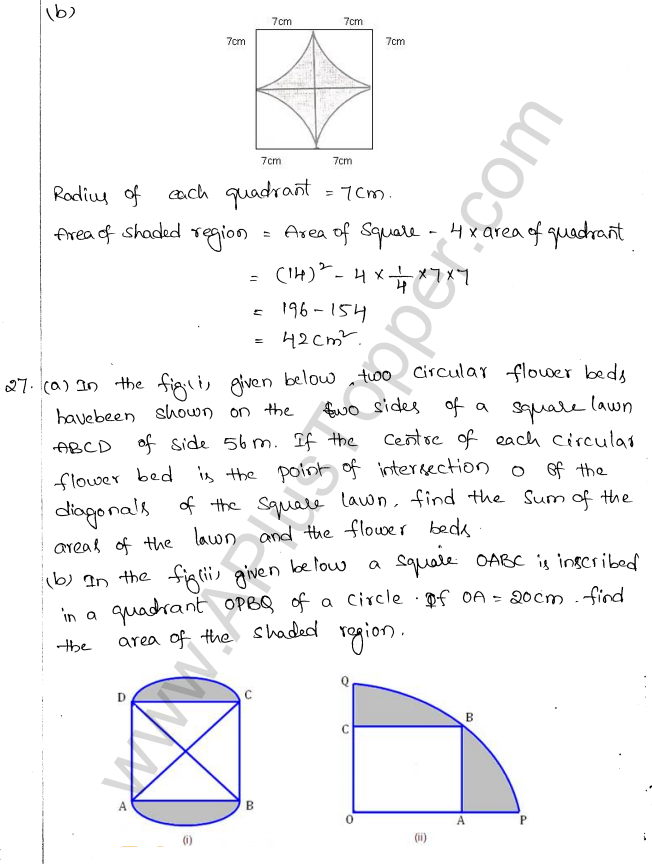 (b)
7cm 7cm
7cm 7cm
7cm 7cm
Radius of each quadrant = 7cm.
Area of shaded region = Area of Square - 4 × area of quadrant
= (14)² - 4 × 1/4 × 7 × 7
= 196 - 154
= 42 cm².
27. (a) In the fig(i) given below, two circular flower beds
havebeen shown on the two sides of a square lawn
ABCD of side 56m. If the centre of each circular
flower bed is the point of intersection O of the
diagonals of the square lawn, find the sum of the
areas of the lawn and the flower beds.
(b) In the fig(ii) given below a square OABC is inscribed
in a quadrant OPBQ of a circle. If OA = 20cm. find
the area of the shaded region.
D C
A B
(i)
Q
C B
O A P
(ii)
www.APlusTopper.com